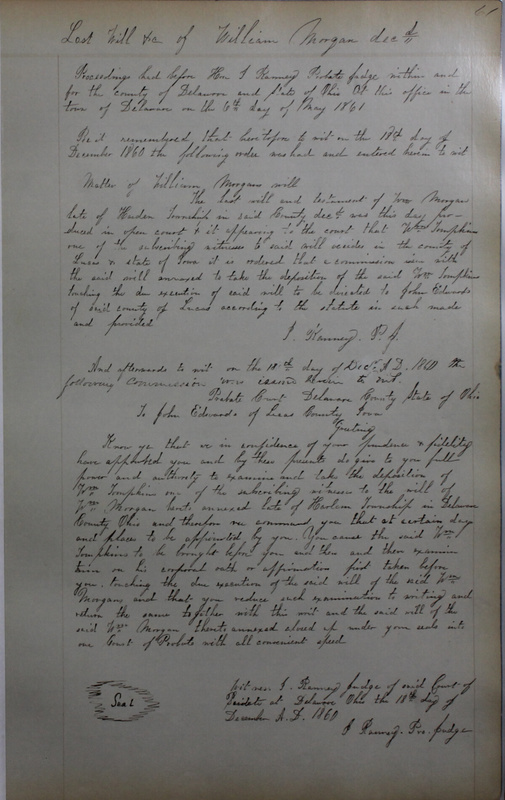 Last Will &c of William Morgan decd
Proceedings had before Hon. T Ranney Probate judge within and
for the county of Delaware and State of Ohio At this office in the
town of Delaware on the 6th day of May 1861
Be it remembered, that heretofore to wit on the 18th day of
December 1860 the following order was had and entered herein to wit
Matter of William Morgans will
The last will and testament of Wm Morgan
late of Harlem Township in said County decd was this day pro-
duced in open court & it appearing to the court that Wm Tompkins
one of the subscribing witnesses to said will resides in the county of
Lucas & state of Iowa it is ordered that a commission issue with
the said will annexed to take the deposition of the said Wm Tompkins
touching the due execution of said will to be directed to John Edwards
of said county of Lucas according to the statute in such made
and provided
T. Ranney, P. J.
And afterwards to wit on the 18th day of Dec. A.D. 1860 the
following Commission was issued herein to wit.
Probate Court Delaware County State of Ohio
To John Edwards of Lucas County Iowa
Greeting
Know ye that we in confidence of your prudence & fidelity
have appointed you and by these presents do give to you full
power and authority to examine and take the deposition of
Wm Tompkins one of the subscribing witnesses to the will of
Wm Morgan hereto annexed late of Harlem Township in Delaware
County Ohio and therefore we command you that at certain days
and places to be appointed by you. You cause the said Wm
Tompkins to be brought before you and then and there examine
him on his corporal oath or affirmation first taken before
you, touching the due execution of the said will of the said Wm
Morgan, and that you reduce such examination to writing and
return the same together with this writ and the said will of the
said Wm Morgan thereto annexed closed up under your seal into
our Court of Probate with all convenient speed
Seal
Witness. T. Ranney judge of said Court of
Probate at Delaware Ohio the 18th day of
December A.D. 1860
T Ranney. Pro. judge